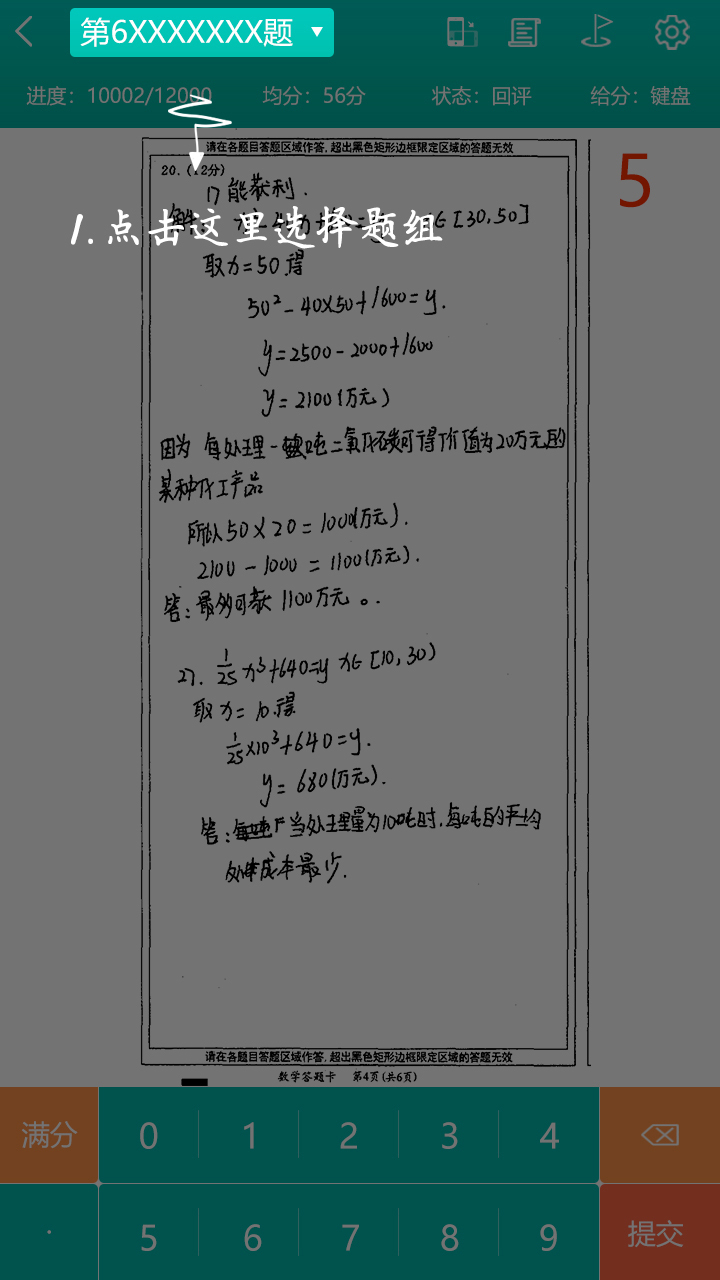 第6XXXXXXX题
进度：10002/12000 均分：56分 状态：回评 给分：键盘
请在各题目答题区域作答,超出黑色矩形边框限定区域的答题无效
5
20.（12分）
能获利.
1.点击这里选择题组
∈[30,50]
取x=50得
50²-40×50+1600=y.
y=2500-2000+1600
y=2100(万元)
因为 每处理一吨二氧化碳可得价值为20万元的
某种化工产品
所以50×20=1000(万元).
2100-1000=1100(万元).
答:最多可获1100万元。.
27. 1/25 x³+640=y x∈[10,30)
取x=10.得
1/25×10³+640=y.
y=680(万元).
答: 当处理量为10吨时,每吨的平均
成本最少.
请在各题目答题区域作答,超出黑色矩形边框限定区域的答题无效
数学答题卡 第4页(共6页)
满分 0 1 2 3 4
. 5 6 7 8 9 提交